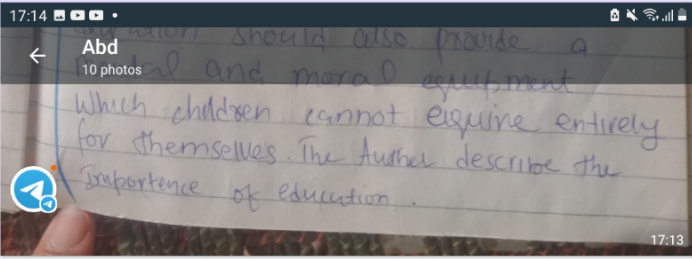 17:14
Abd
10 photos
should also provide a
and moral equipment
which children cannot eiquire entirely
for themselves. The Auther describe the
Importence of education.
17:13